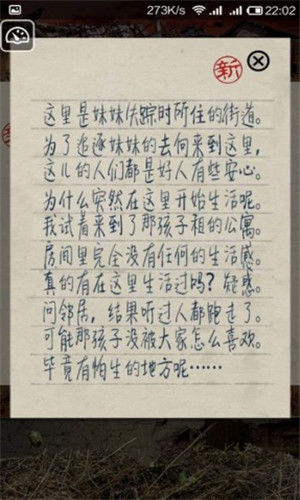 273K/s 22:02
新
这里是妹妹失踪时所住的街道。
为了追逐妹妹的去向来到这里,
这儿的人们都是好人有些安心。
为什么突然在这里开始生活呢。
我试着来到了那孩子租的公寓。
房间里完全没有任何的生活感。
真的有在这里生活过吗？疑惑。
问邻居，结果听过人都跑走了。
可能那孩子没被大家怎么喜欢。
毕竟有怕生的地方呢……